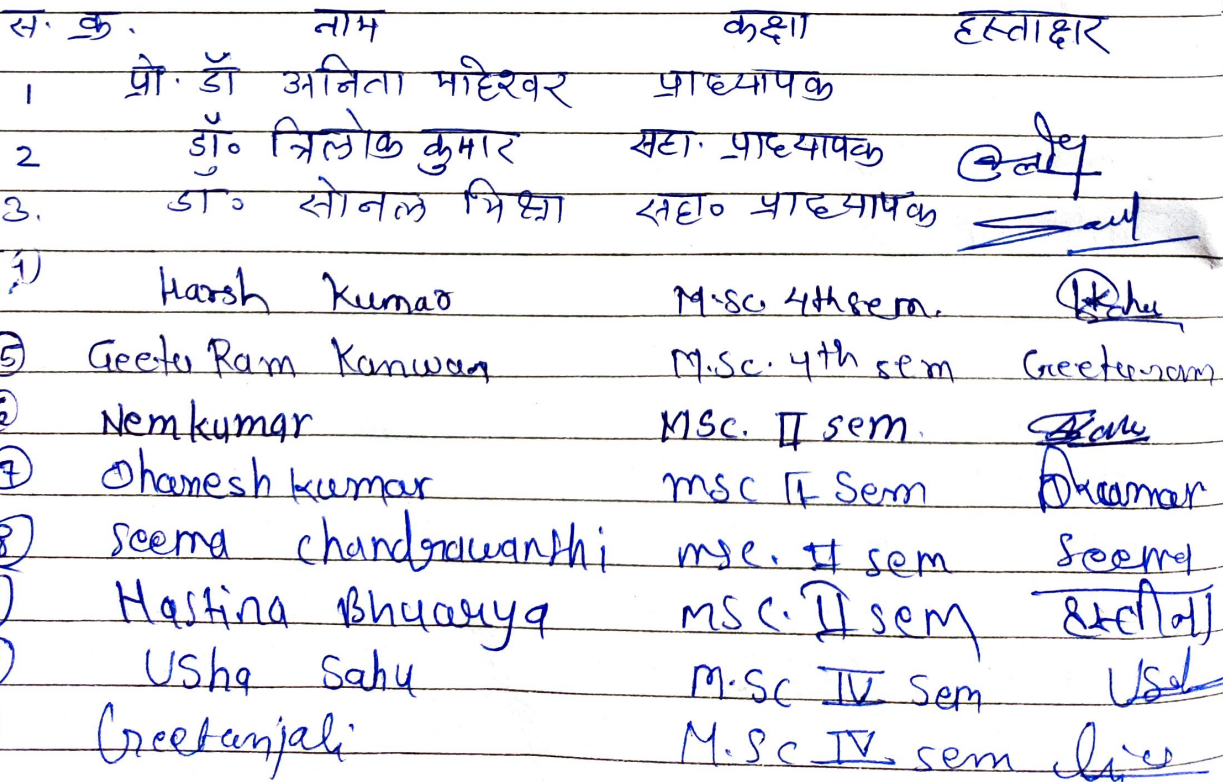 स. क्र. नाम कक्षा हस्ताक्षर
1 प्रो. डॉ अनिता माहेश्वर प्राध्यापक
2 डॉ० त्रिलोक कुमार सहा. प्राध्यापक
3. डा० सोनल मिश्रा सहा० प्राध्यापक
Harsh Kumar M.sc 4th sem.
5 Geetu Ram Kanwar M.Sc. 4th sem Geeturam
Nemkumar MSc. II sem.
7 Dhanesh kumar msc II Sem Dkumar
8 Seema chandrawanshi msc. II sem Seema
Hastina Bhuarya MSC. II sem हस्तीना
Usha Sahu M.SC IV Sem
Geetanjali M.Sc IV sem